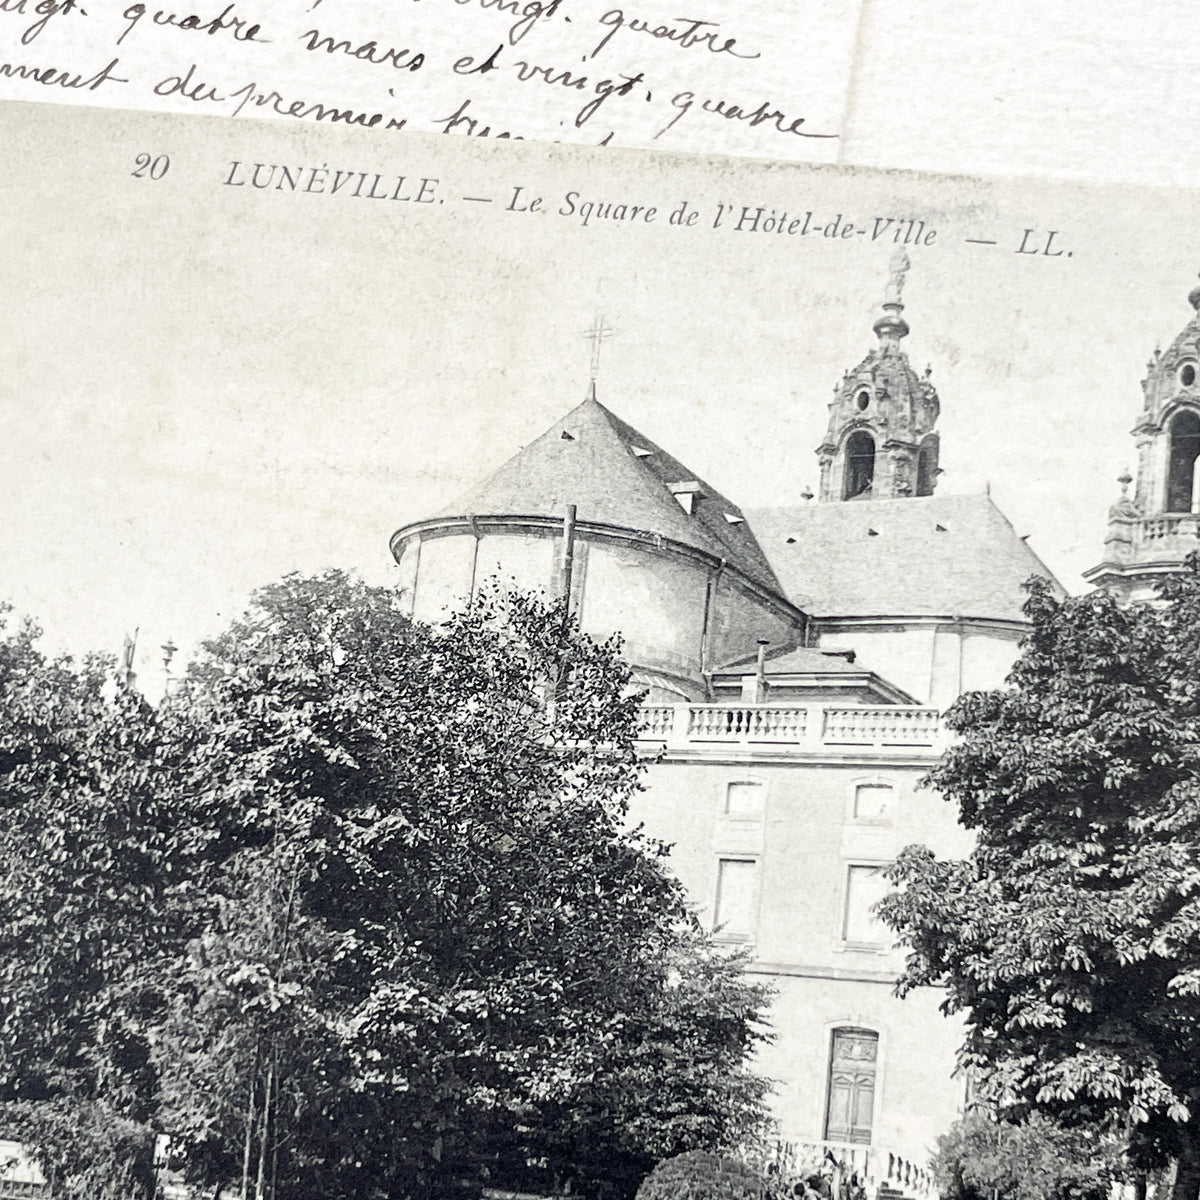 vingt. quatre
vingt. quatre mars et vingt. quatre
ment du premier
20 LUNÉVILLE. — Le Square de l'Hôtel-de-Ville — LL.